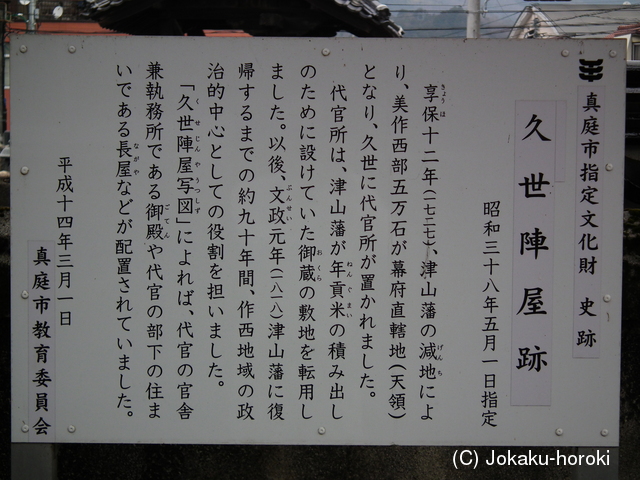 真庭市指定文化財 史跡
久世陣屋跡
昭和三十八年五月一日指定
享保十二年(一七二七)、津山藩の減地によ
り、美作西部五万石が幕府直轄地(天領)
となり、久世に代官所が置かれました。
代官所は、津山藩が年貢米の積み出し
のために設けていた御蔵の敷地を転用し
ました。以後、文政元年(一八一八)津山藩に復
帰するまでの約九十年間、作西地域の政
治的中心としての役割を担いました。
「久世陣屋写図」によれば、代官の官舎
兼執務所である御殿や代官の部下の住ま
いである長屋などが配置されていました。
平成十四年三月一日
真庭市教育委員会
(C) Jokaku-horoki